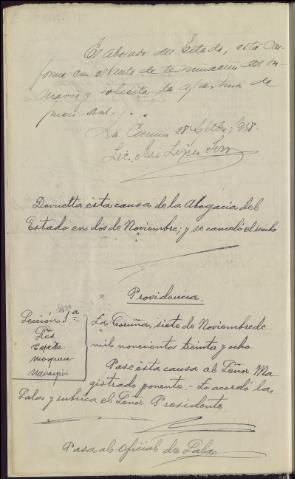 El Abogado del Estado, está con
forme con el auto de terminación del su
mario y solicita la apertura de
juicio oral.
La Coruña 28 Octubre, 1938.
Lic. José López
Devuelta esta causa de la Abogacía del
Estado en dos de Noviembre; y se canceló el recibo
Providencia
Sección 1ª
La Coruña, siete de Noviembre de
mil novecientos treinta y ocho
Pase esta causa al Señor Ma
gistrado ponente.- Lo acordó la
Sala y rubrica el Señor Presidente
Pasa al Oficial de Sala.